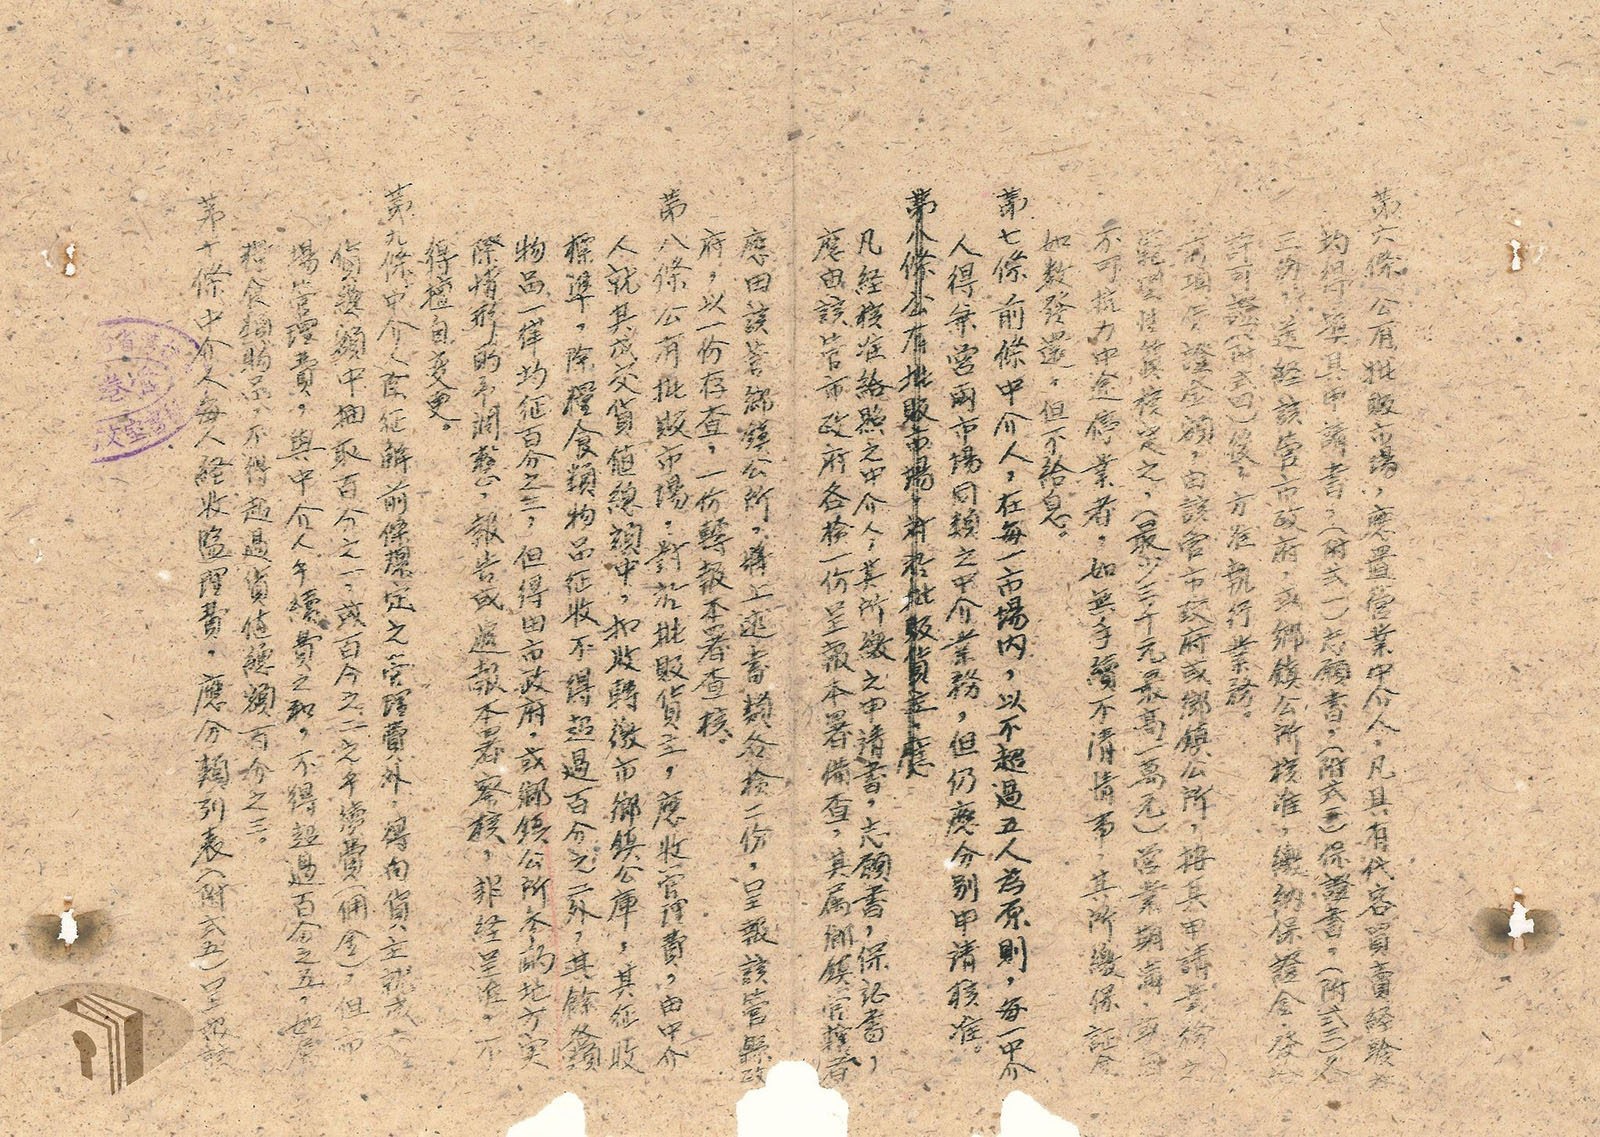 第六條 公有批販市場，應置營業中介人，凡具有代客買賣經驗者
均得填具申請書，（附式一）志願書，（附式二）保證書，（附式三）各
三份，送經該管市政府，或鄉鎮公所核准，繳納保證金，發給
許可證（附式四）後，方准執行業務。
前項保證金額，由該管市政府或鄉鎮公所，按其申請業務之
範圍性質核定之，（最少三千元最高一萬元）營業期滿，或因
不可抗力中途停業者，如無手續不清情事，其所繳保証金
如數發還，但不給息。
第七條 前條中介人，在每一市場內，以不超過五人為原則，每一中介
人得兼營兩市場同類之中介業務，但仍應分別申請核准。
第八條 公有批販市場，對於批販貨主，應
凡経核准給照之中介人，其所繳之申請書，志願書，保証書，
應由該管市政府各檢一份呈報本署備查，其屬鄉鎮管轄者
應由該管鄉鎮公所，將上述書類各檢二份，呈報該管縣政
府，以一份存查，一份轉報本署查核。
第八條 公有批販市場，對於批販貨主，應收管理費，由中介
人就其成交貨値總額中，扣收轉繳市鄉鎮公庫，其征收
標準，除糧食類物品征收不得超過百分之二外，其餘各類
物品一律均征百分之三，但得由市政府，或鄉鎮公所參酌地方实
際情形酌予調整，報告或遞報本署察核，非経呈准，不
得擅自变更。
第九條 中介人除征解前條規定之管理費外，得向貨主就成交
貨款額中抽取百分之一，或百分之二之手續費（佣金），但市
場管理費，與中介人手續費之和，不得超過百分之五，如屬
糧食類物品，不得超過貨值總額百分之三。
第十條 中介人每人経收監理費，應分類列表（附式五）呈報該